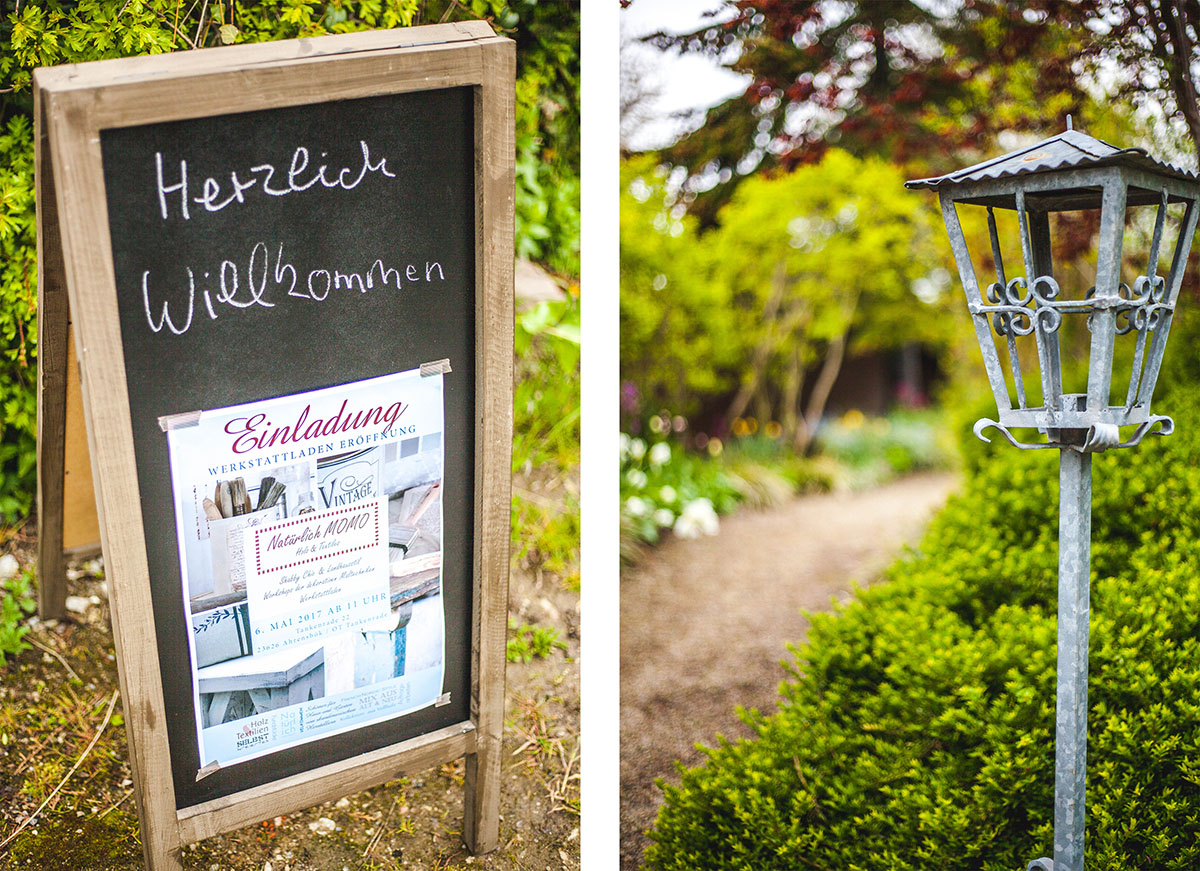 Herzlich
Willkommen
Einladung
WERKSTATTLADEN ERÖFFNUNG
VINTAGE
Natürlich MOMO
Holz & Textiles
Shabby Chic & Landhausstil
Workshops für dekorative Maltechniken
Werkstattladen
6. MAI 2017 AB 11 UHR
Tankenrade 22
23626 Ahrensbök | OT Tankenrade
Holz
Textilien
SELBST
MIX AUS
ALT & NEU